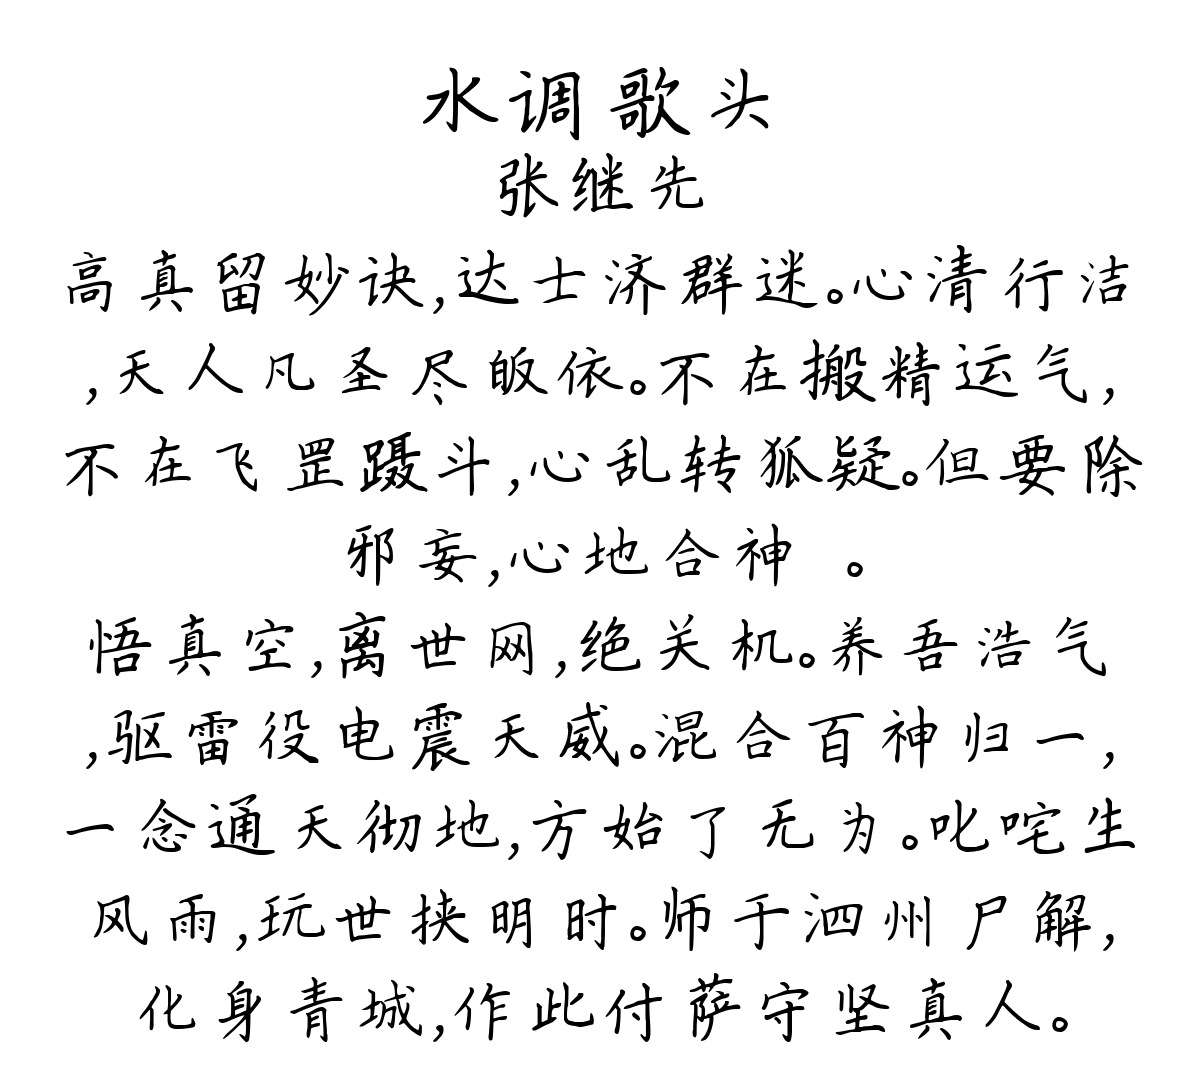 水调歌头
张继先
高真留妙诀,达士济群迷。心清行洁
,天人凡圣尽皈依。不在搬精运气,
不在飞罡蹑斗,心乱转狐疑。但要除
邪妄,心地合神 。
悟真空,离世网,绝关机。养吾浩气
,驱雷役电震天威。混合百神归一,
一念通天彻地,方始了无为。叱咤生
风雨,玩世挟明时。师于泗州尸解,
化身青城,作此付萨守坚真人。